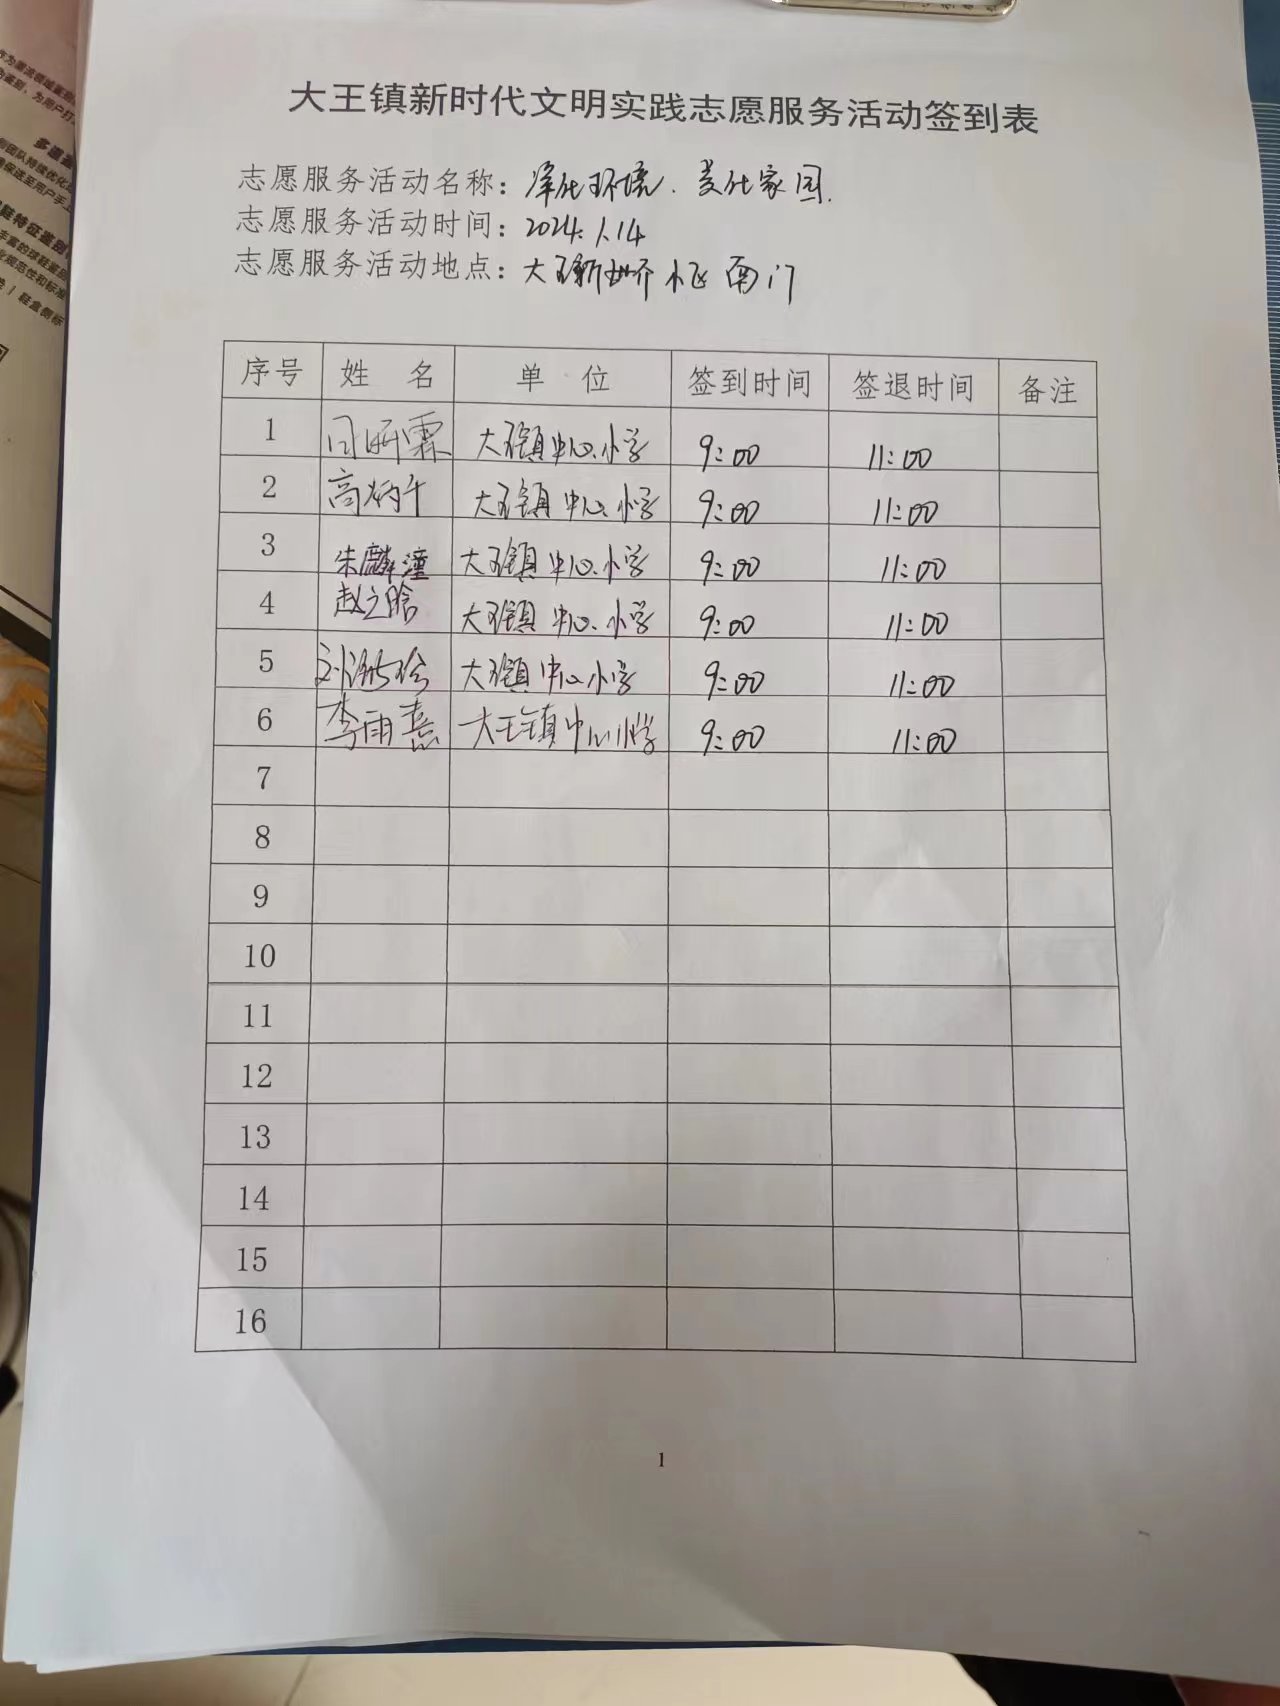 大王镇新时代文明实践志愿服务活动签到表
志愿服务活动名称：净化环境.美化家园.
志愿服务活动时间：2024.1.14
志愿服务活动地点：大王新世界小区南门
序号 姓 名 单 位 签到时间 签退时间 备注
1 大王镇中心小学 9:00 11:00
2 高炳千 大王镇中心小学 9:00 11:00
3 朱麟潼 大王镇中心小学 9:00 11:00
4 赵之晗 大王镇中心小学 9:00 11:00
5 大王镇中心小学 9:00 11:00
6 李雨熹 大王镇中心小学 9:00 11:00
7
8
9
10
11
12
13
14
15
16
1